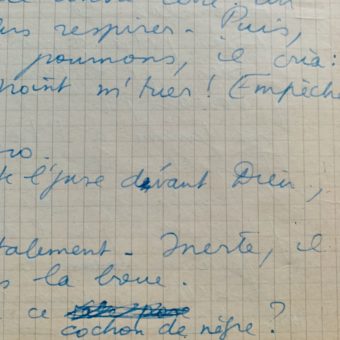 urs respirer - Puis,
poumons, il cria :
point m'tuer ! Empêche
ro.
l'jure devant Dieu,
talement - Inerte, il
s la boue.
ce
cochon de nègre ?